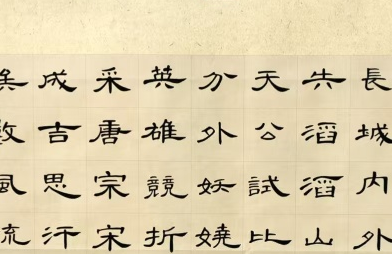 長城內外
失滔滔山
天公試比
分外妖嬈
英雄競折
采唐宗宋
成吉思汗
矣數風流